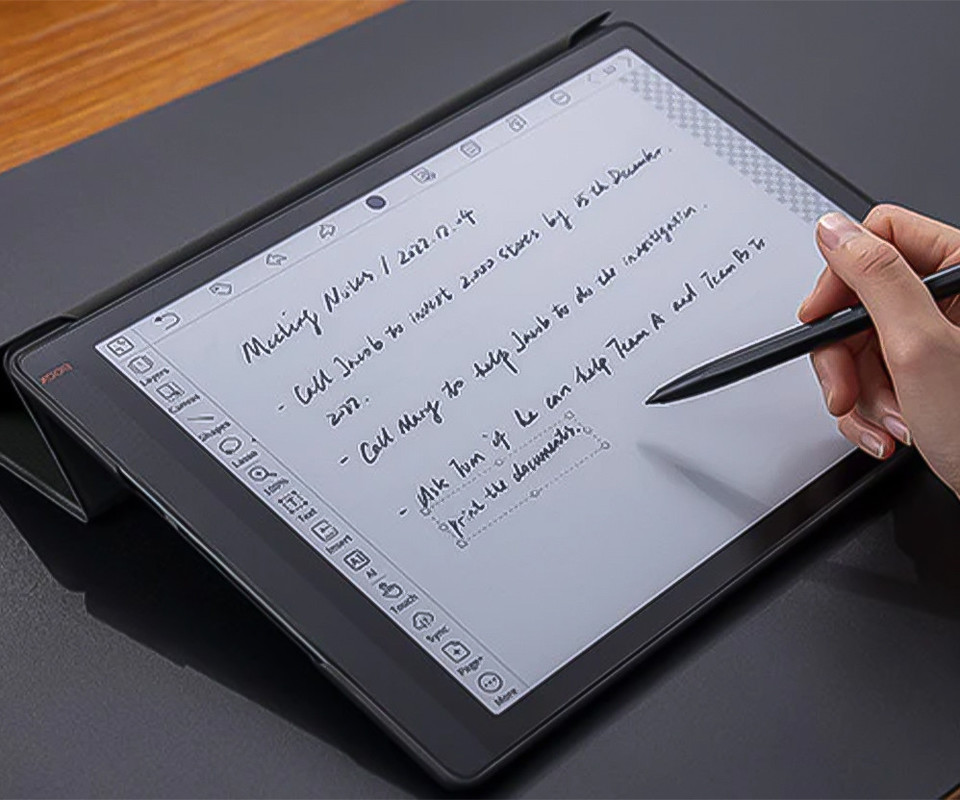 BOOX
Layers
Canvas
Shapes
Lasso
Link
Text
Insert
AI
Touch
Sync
Page+
More
Meeting Notes / 2022.12.04
- Call Jacob to invest 2.000 stores by 15 th December
2022.
- Call Mary to help Jacob to do the investigation.
- Ask Tom if he can help Team A and Team B to
print the documents.